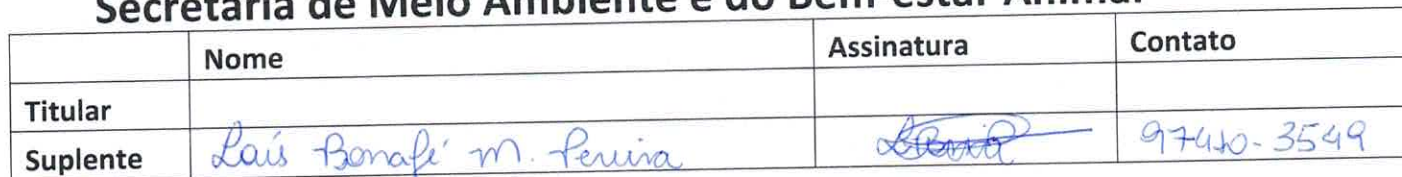 Secretaria de Meio Ambiente e do Bem-estar Animal
Nome Assinatura Contato
Titular
Suplente Laís Bonafé M. Pereira 97410-3549